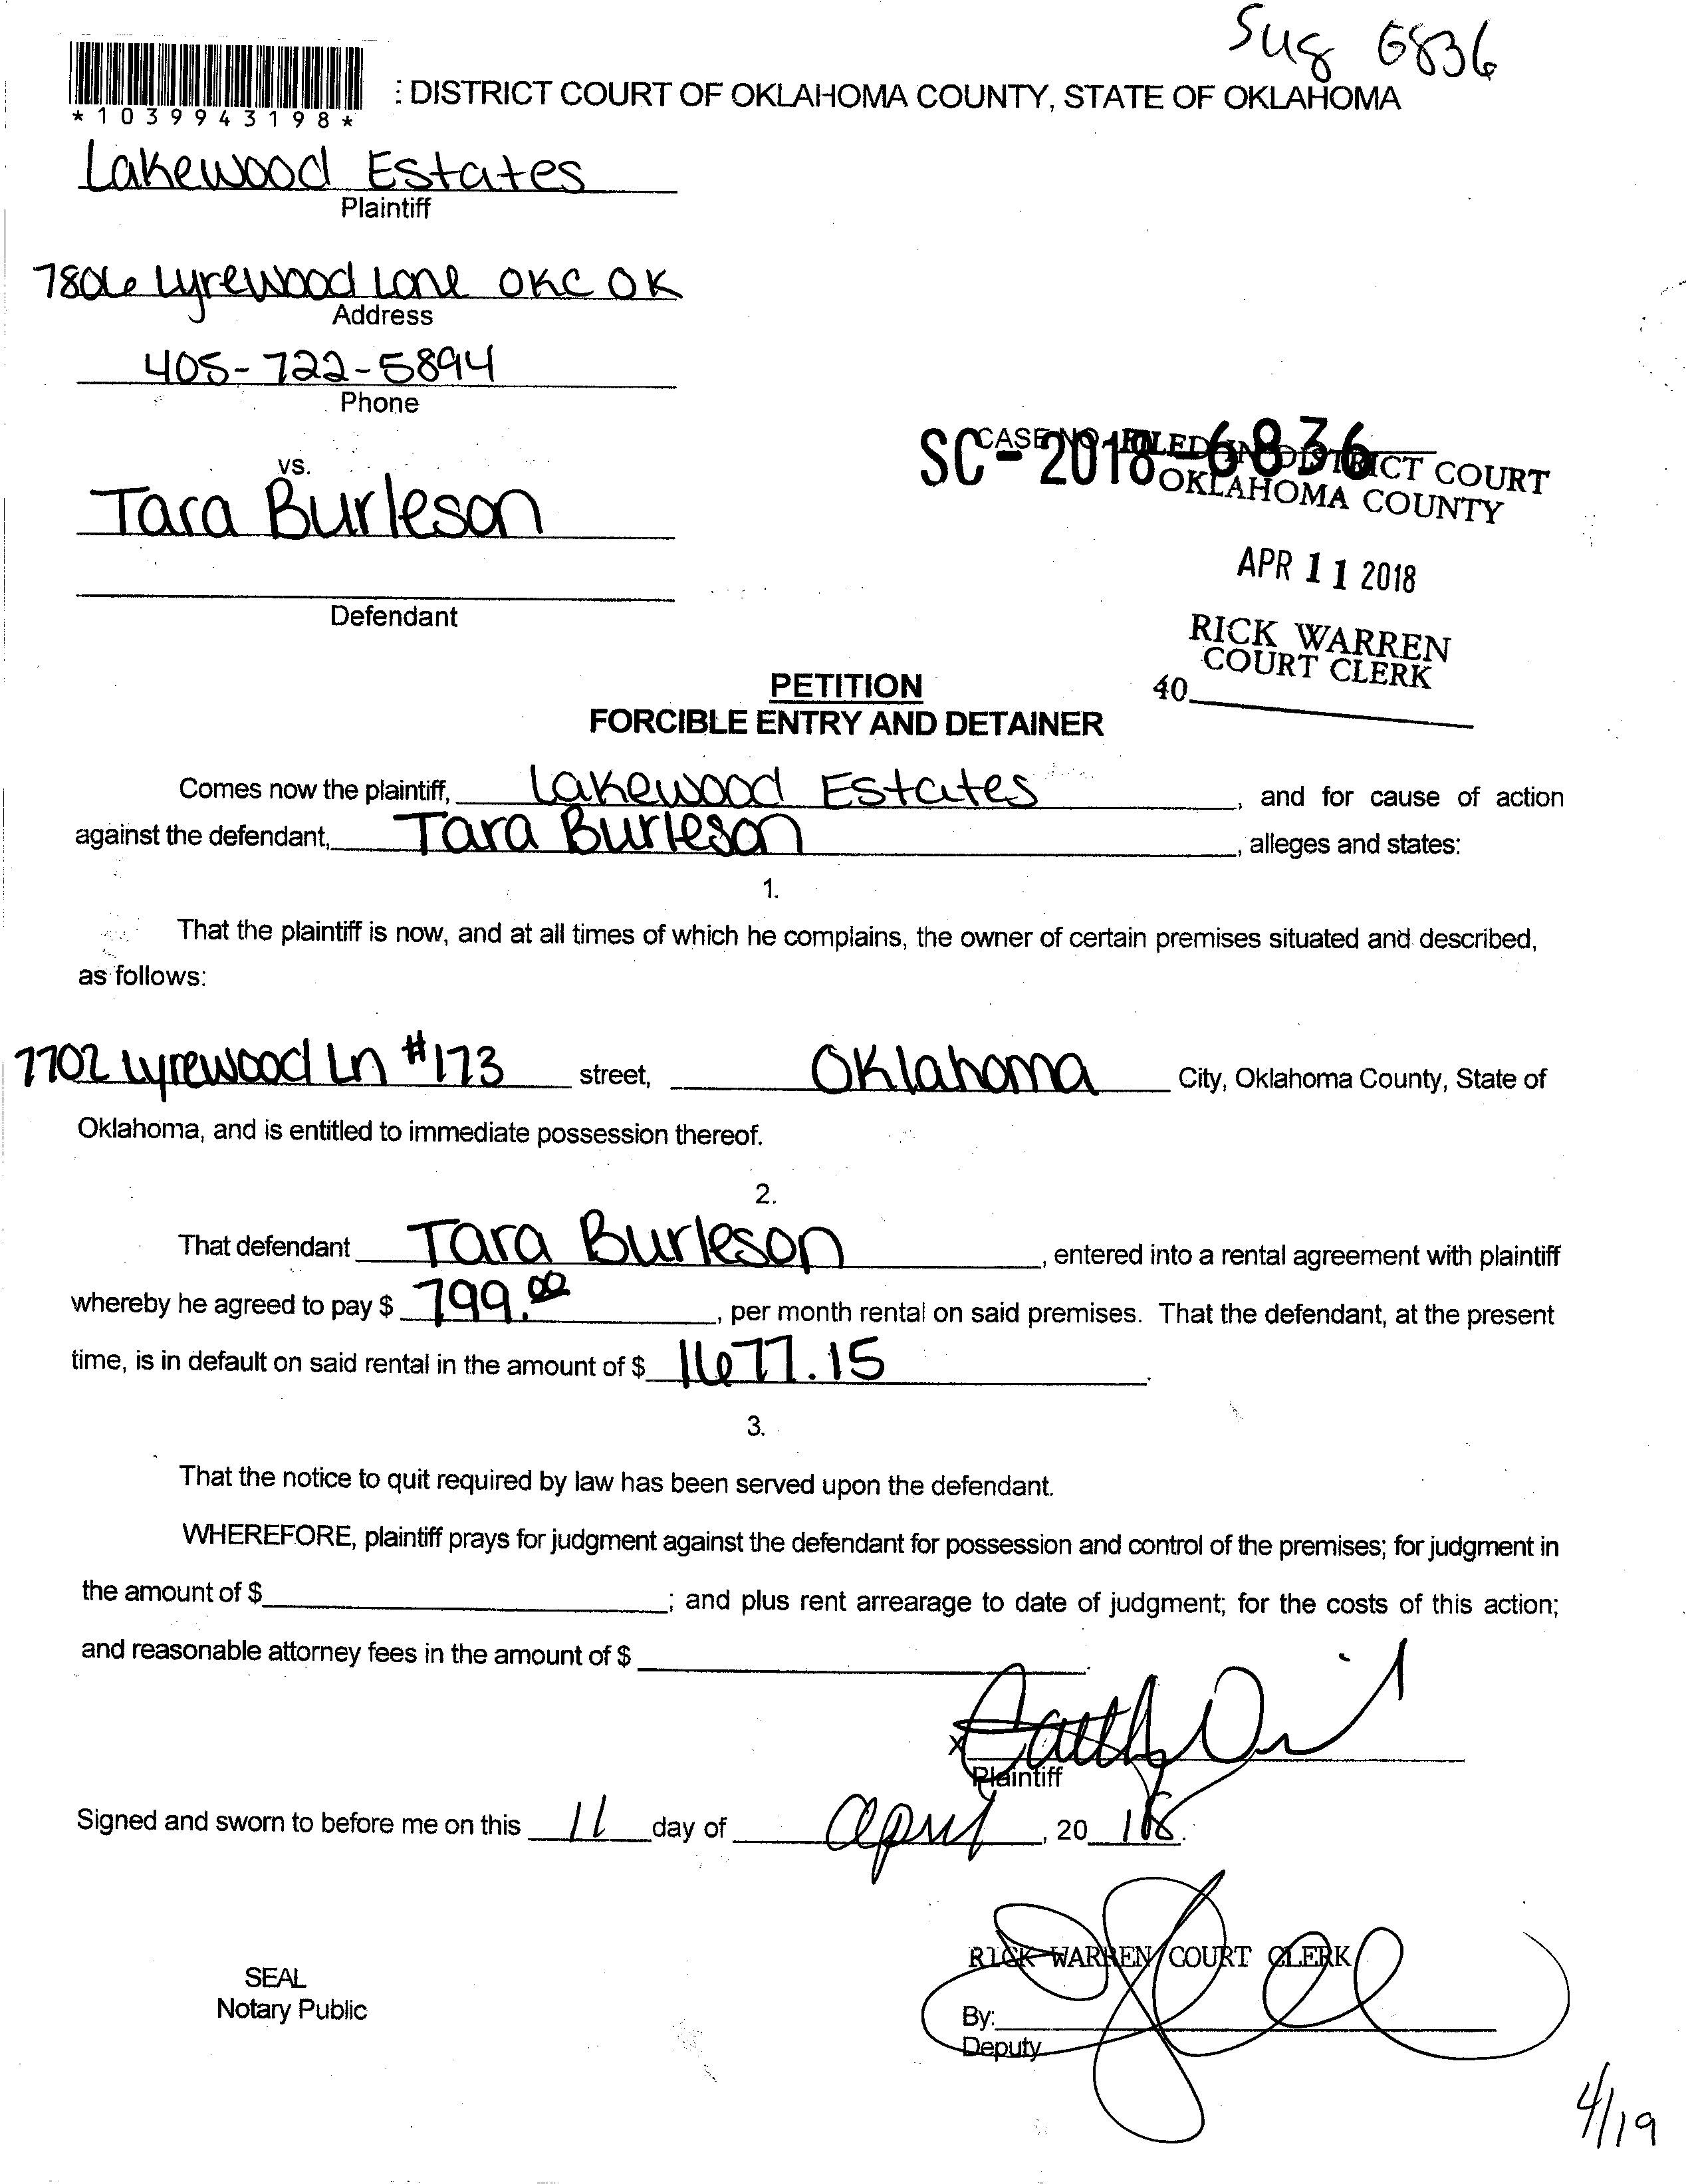 Sug 6836
: DISTRICT COURT OF OKLAHOMA COUNTY, STATE OF OKLAHOMA
*1039943198*
Lakewood Estates
Plaintiff
7806 Lyrewood Lane OKC OK
Address
405-722-5894
Phone
vs.
Tara Burleson
Defendant
CASE NO.
SC-2018-6836
FILED IN DISTRICT COURT
OKLAHOMA COUNTY
APR 11 2018
RICK WARREN
COURT CLERK
40
PETITION
FORCIBLE ENTRY AND DETAINER
Comes now the plaintiff, Lakewood Estates, and for cause of action
against the defendant, Tara Burleson, alleges and states:
1.
That the plaintiff is now, and at all times of which he complains, the owner of certain premises situated and described,
as follows:
7702 Lyrewood Ln #173 street, Oklahoma City, Oklahoma County, State of
Oklahoma, and is entitled to immediate possession thereof.
2.
That defendant Tara Burleson, entered into a rental agreement with plaintiff
whereby he agreed to pay $ 799.00, per month rental on said premises. That the defendant, at the present
time, is in default on said rental in the amount of $ 1677.15.
3.
That the notice to quit required by law has been served upon the defendant.
WHEREFORE, plaintiff prays for judgment against the defendant for possession and control of the premises; for judgment in
the amount of $ ; and plus rent arrearage to date of judgment; for the costs of this action;
and reasonable attorney fees in the amount of $ .
X
Plaintiff
Signed and sworn to before me on this 11 day of April, 20 18.
RICK WARREN COURT CLERK
SEAL
Notary Public
By:
Deputy
4/19